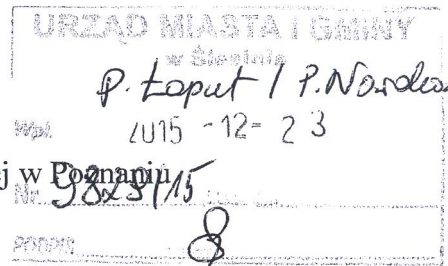 URZĄD MIASTA I GMINY
w Ślesinie
P. Łaput / P.
Wpł. 2015 -12- 23
j w Poznaniu
Nr. 9829/15
PODPIS